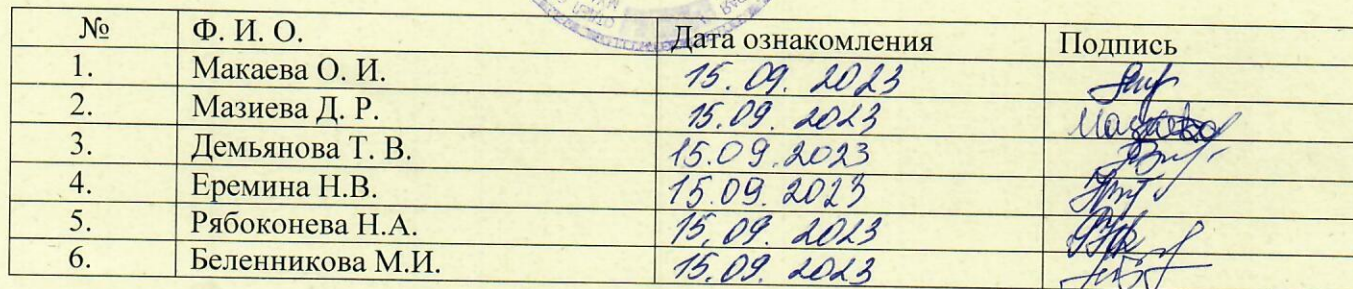 № Ф. И. О. Дата ознакомления Подпись
1. Макаева О. И. 15.09.2023
2. Мазиева Д. Р. 15.09.2023
3. Демьянова Т. В. 15.09.2023
4. Еремина Н.В. 15.09.2023
5. Рябоконева Н.А. 15.09.2023
6. Беленникова М.И. 15.09.2023